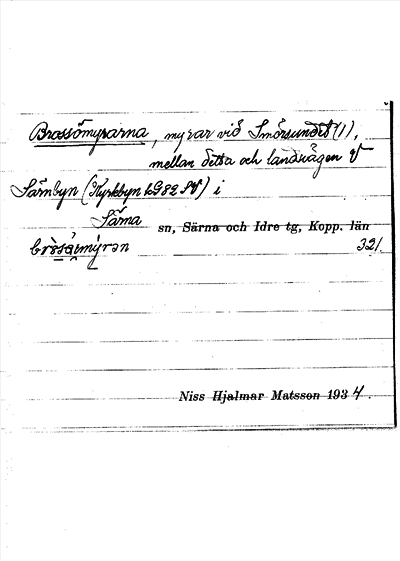 Brossömyrarna, myrar vid Smörsundet (1),
mellan detta och landsvägen V
Särnbyn (Kyrkbyn
i
Särna sn, Särna och Idre tg, Kopp. län
321.
Niss Hjalmar Matsson 1934.